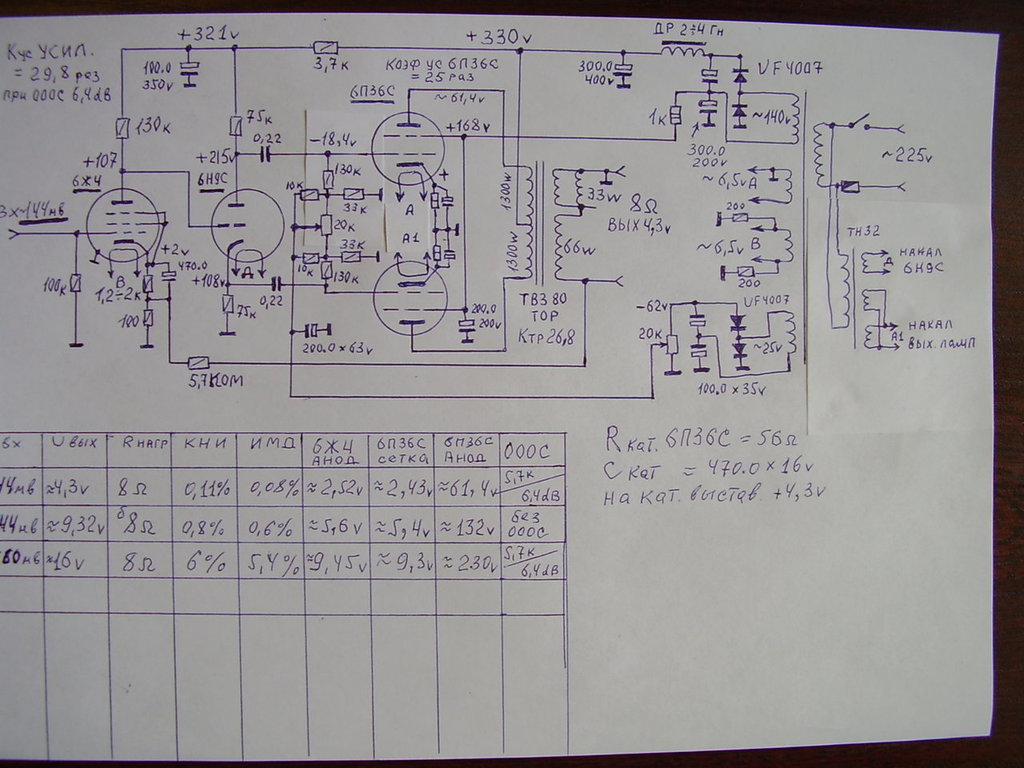 Кус УСИЛ.
= 29,8 раз
при ОООС 6,4дВ
+321v
100.0
350v
3,7к
+330v
КОЭФ УС 6П36С
= 25 РАЗ
6П36С
~61,4v
300.0
400v
ДР 2÷4 Гн
UF4007
1к
~140v
300.0
200v
~225v
130к
75к
0,22
-18,4v
+168v
+107
6Ж4
+215v
6Н9С
130к
10к
33к
20к
33к
10к
130к
А
А1
+
1300w
1300w
33w
66w
8Ω
ВЫХ 4,3v
~6,5v А
200
~6,5v В
200
ТН32
НАКАЛ
6Н9С
Д
НАКАЛ
ВЫХ. ЛАМП
А1
~144мв
+2v
470.0
100к
В
1,2÷2к
100
+108v
Д
75к
0,22
200.0 x 63v
200.0
200v
ТВЗ 80
ТОР
Ктр 26,8
-62v
20к
UF4007
~25v
100.0 x 35v
5,7КОМ
вх U ВЫХ R НАГР КНИ ИМД 6Ж4 АНОД 6П36С СЕТКА 6П36С АНОД ОООС
44мв ≈4,3v 8Ω 0,11% 0,08% ≈2,52v ≈2,43v ≈61,4v 5,7к 6,4дВ
44мв ≈9,32v 8Ω 0,8% 0,6% ≈5,6v ≈5,4v ≈132v без ОООС
60мв ≈16v 8Ω 6% 5,4% ≈9,45v ≈9,3v ≈230v 5,7к 6,4дВ
R кат. 6П36С = 56Ω
С кат = 470.0 x 16v
на кат. выстав. +4,3v